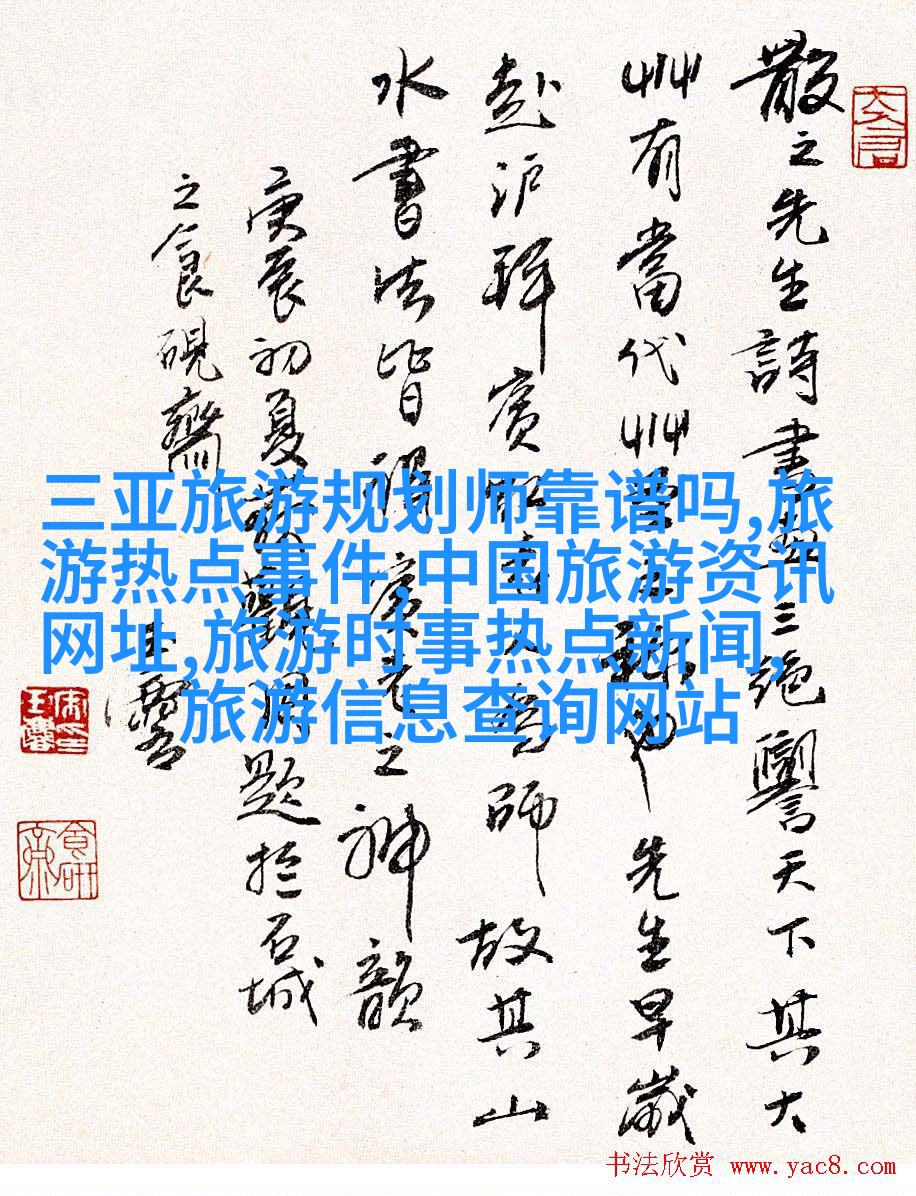 散之先生詩書畫三绝譽天下其大
艸有當代艸聖之称也先生早歲
赴沪拜賓虹老人為師故其山
水書法皆得賓老之神韻
庚辰初夏讀題於石城
之食硯齋
三亚旅游规划师靠谱吗,旅
游热点事件,中国旅游资讯
网址,旅游时事热点新闻,
旅游信息查询网站
书法欣赏 www.yac8.com